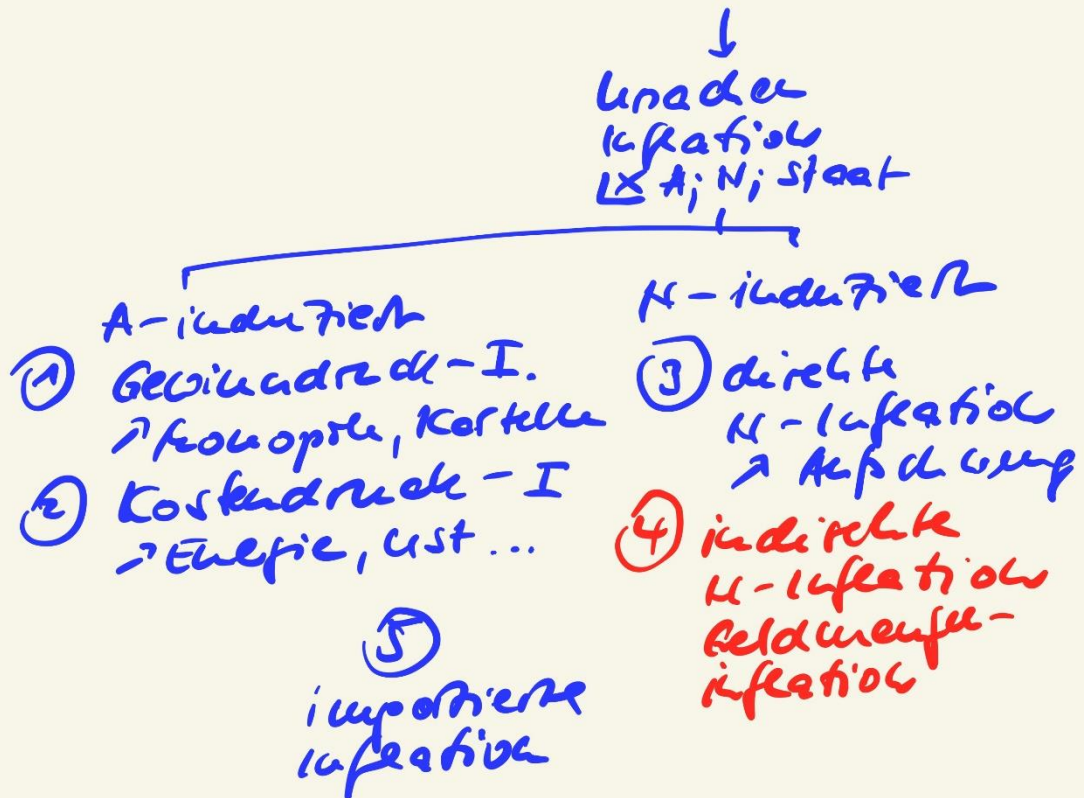 Ursachen
Inflation
A; N; Staat
A-induziert
① Gewinndruck-I.
↗ Monopole, Kartelle
② Kostendruck-I
↗ Energie, USt ...
N-induziert
③ direkte
N-Inflation
↗ Aufschwung
④ indirekte
N-Inflation
Geldmengen-
inflation
⑤
importierte
Inflation